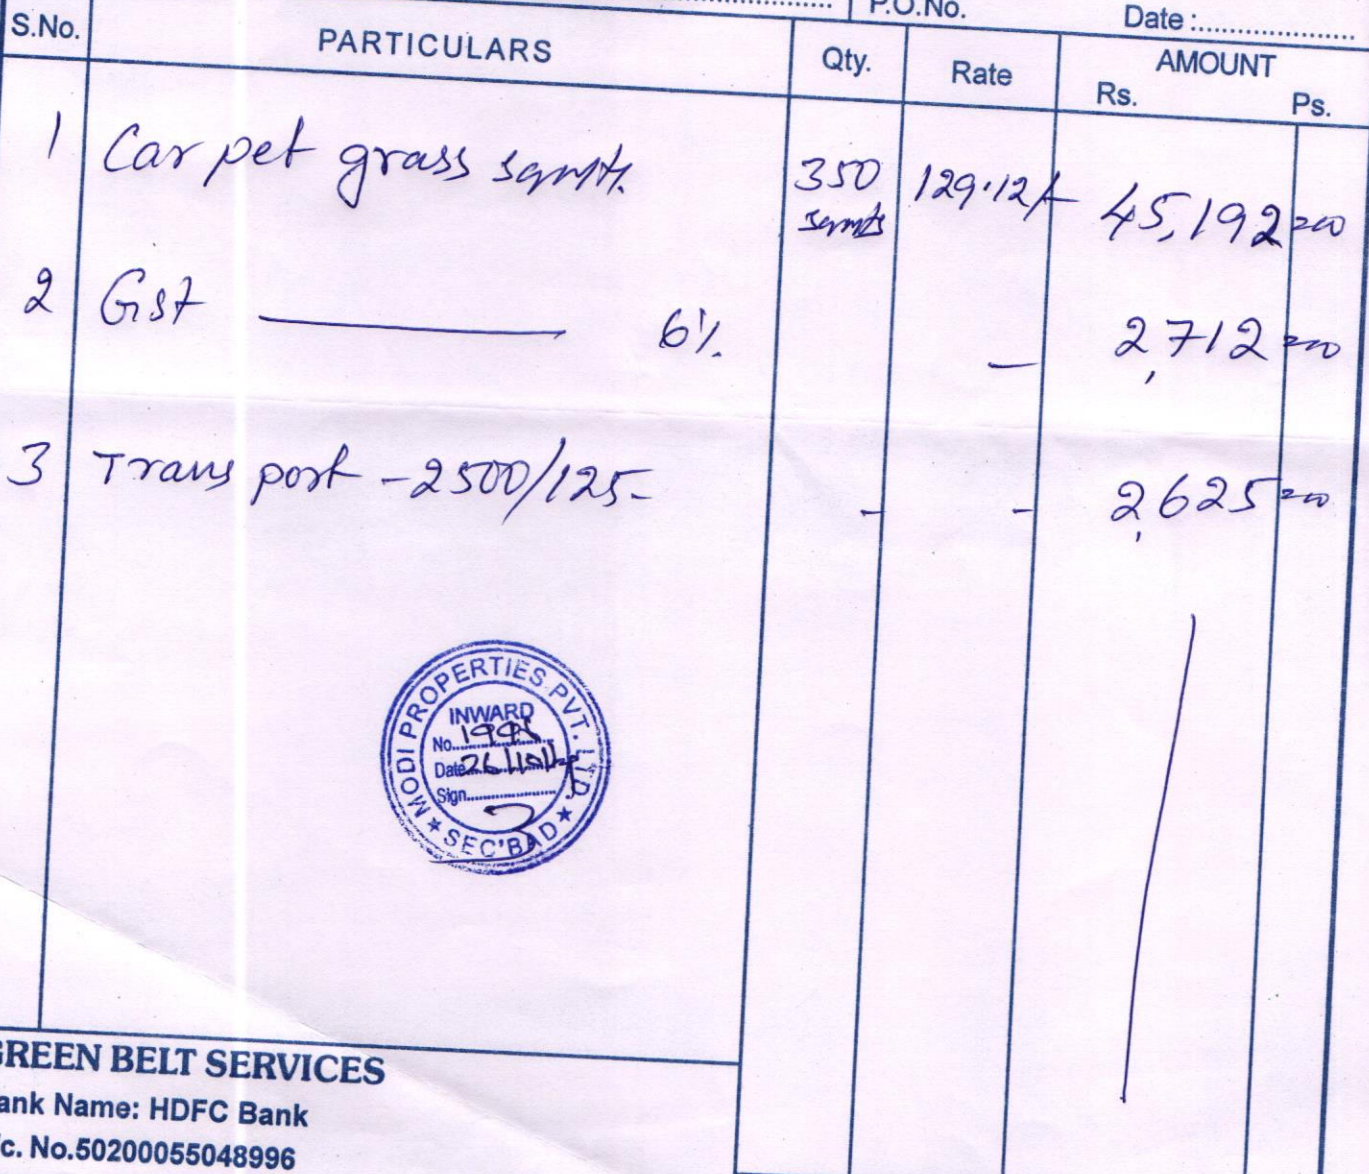 P.O.No. Date :
S.No. PARTICULARS Qty. Rate AMOUNT
Rs. Ps.
1 Carpet grass sqmts. 350 sqmts 129.12/- 45,192=00
2 Gst 6% - 2,712=00
3 Transport - 2500/125- - - 2,625=00
MODI PROPERTIES PVT. LTD.
★ SEC'BAD ★
INWARD
No.
Date
Sign
GREEN BELT SERVICES
ank Name: HDFC Bank
c. No.50200055048996